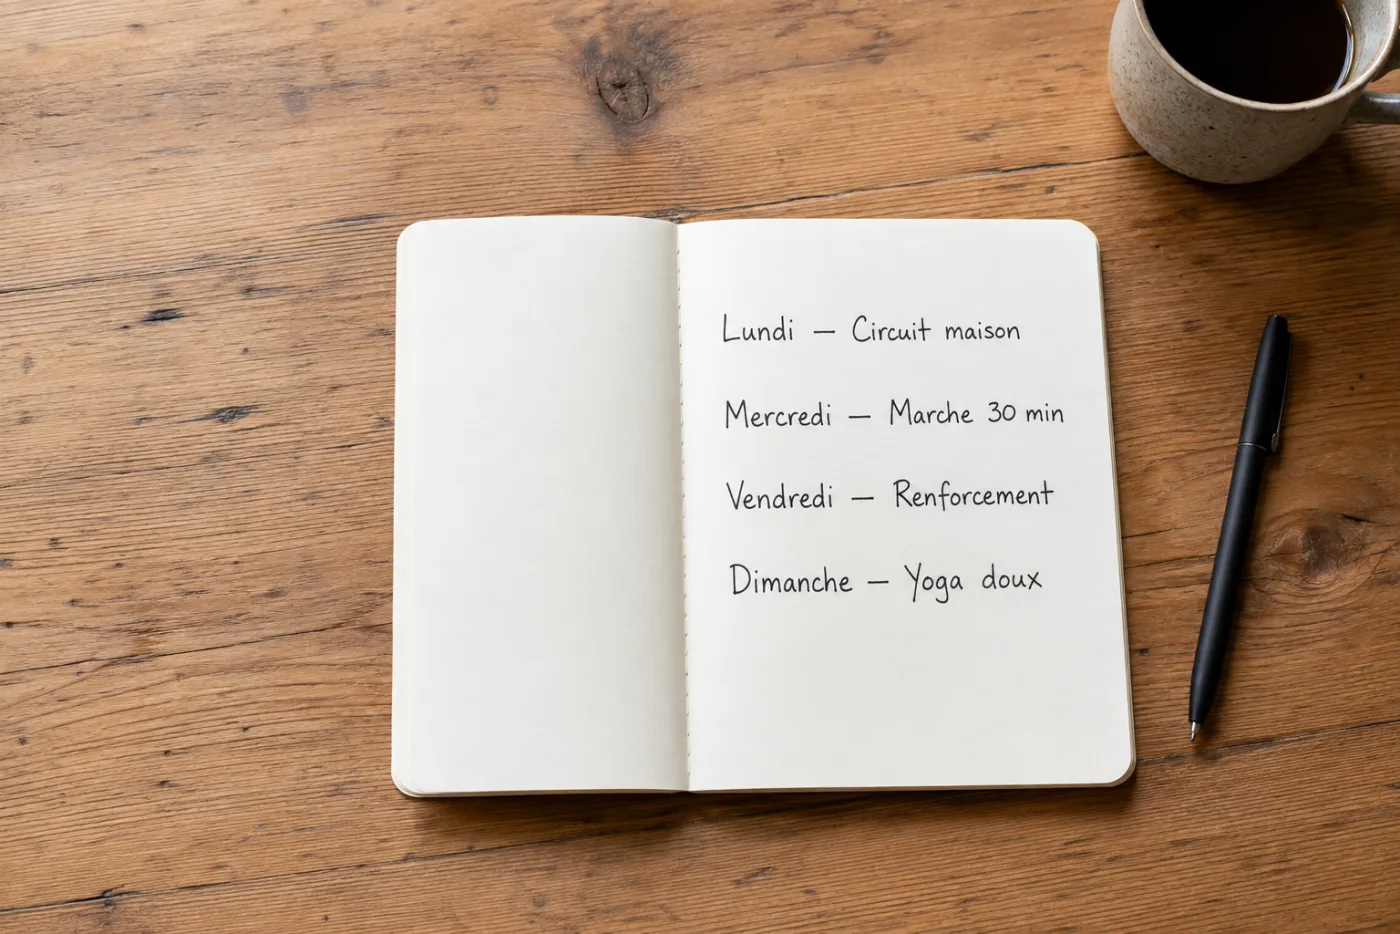 Lundi — Circuit maison
Mercredi — Marche 30 min
Vendredi — Renforcement
Dimanche — Yoga doux